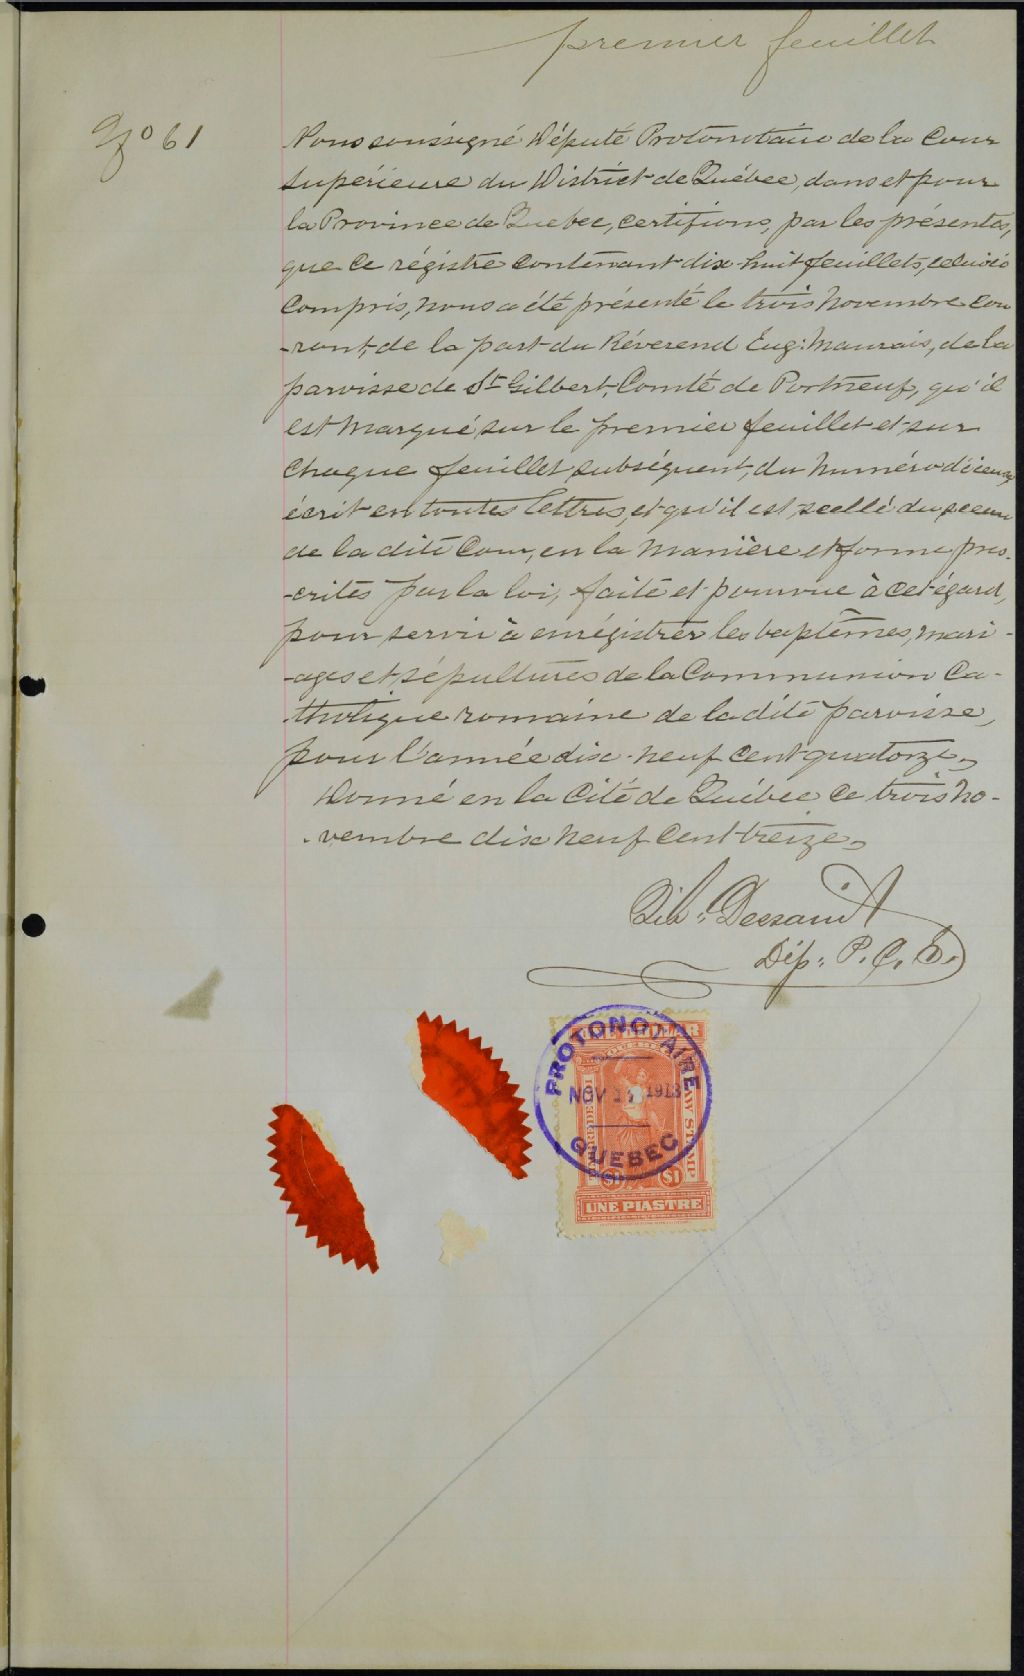 premier feuillet
No 61
Nous soussigné Député Protonotaire de la Cour
Supérieure du District de Québec, dans et pour
la Province de Québec, certifions, par les présentes,
que ce régistre contenant dix-huit feuillets, celui-ci
compris, nous a été présenté le trois Novembre cou
-rant, de la part du Réverend Eug: Maurais, de la
paroisse de St Gilbert, Comté de Portneuf, qu'il
est marqué sur le premier feuillet et sur
chaque feuillet subséquent, du numéro d'iceux,
écrit en toutes lettres, et qu'il est scellé du sceau
de la dite Cour, en la manière et forme pres-
-crites par la loi, faite et pourvue à cet égard,
pour servir à enrégistrer les baptêmes, mari-
-ages et sépultures de la Communion Ca-
-tholique romaine de la dite paroisse,
pour l'année dix-neuf cent quatorze,
Donné en la Cité de Québec ce trois no-
-vembre dix neuf cent treize,
Dessault
Dép: P. C. S.
PROTONOTAIRE
NOV 1913
QUEBEC
LAW STAMP
$1 $1
UNE PIASTRE